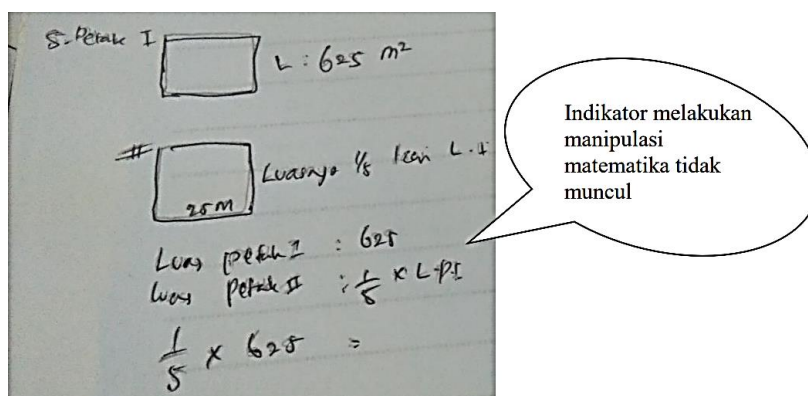 5. Petak I
L : 625 m²
Luasnya 1/5 kali L. I
25 m
Luas petak I : 625
Luas Petak II : 1/5 × L. P I
1/5 × 625 =
Indikator melakukan
manipulasi
matematika tidak
muncul